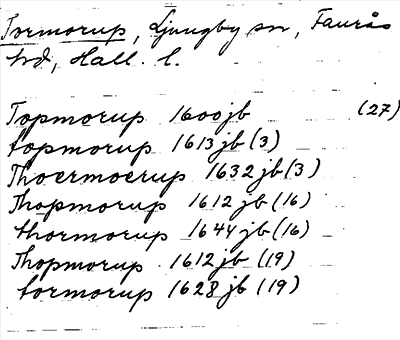 Tormorup, Ljungby sn, Faurås
hd, Hall. l.
Topmorup 1600jb (27)
topmorup 1613 jb (3)
Thoermoerup 1632 jb (3)
Thopmorup 1612 jb (16)
thormorup 1644 jb (16)
Thopmorup 1612 jb (19)
tormorup 1628 jb (19)